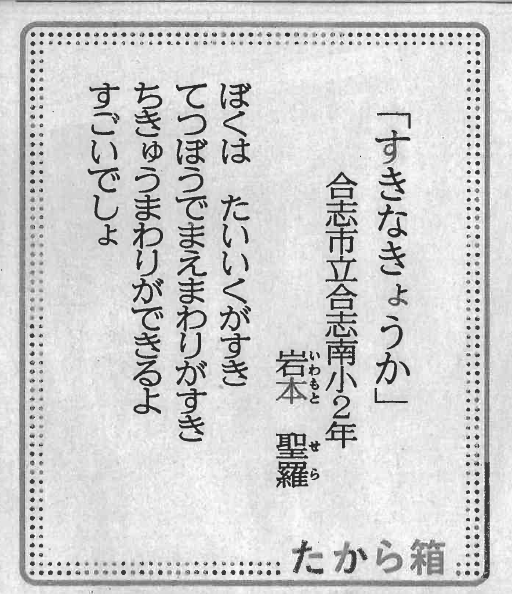 「すきなきょうか」
合志市立合志南小2年
岩本 聖羅
いわもと せら
ぼくは たいいくがすき
てつぼうでまえまわりがすき
ちきゅうまわりができるよ
すごいでしょ
たから箱